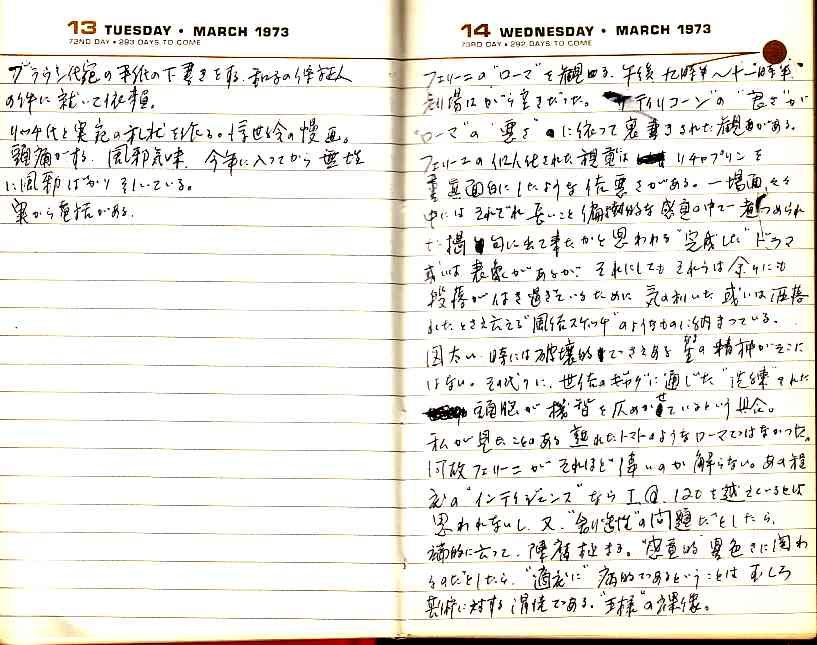 13 TUESDAY • MARCH 1973
72ND DAY • 293 DAYS TO COME
ブラウン氏宛の手紙の下書きをする。和子の保証人
の件に就いて依頼。
リッチ氏と実宛の礼状を
頭痛がする。風邪気味。今年に入ってから無性
に風邪ばかり引いている。
実から電話がある。
14 WEDNESDAY • MARCH 1973
73RD DAY • 292 DAYS TO COME
フェリーニの"ローマ"を観る。午後九時半〜十一時半。
劇場はがら空きだった。"サティリコーン"の"良さ"が
"ローマ"の"悪さ"に依って裏書きされた観がある。
フェリーニの
真面目にしたような 悪さがある。一場面々々
中にはそれぞれ長いこと 的な 中で煮つめられ
た揚句に出て来たかと思われる"完成した"ドラマ
或いは表象があるが、それにしてもそれらは余りにも
が 過ぎているために気の利いた或いは
されたとさえ云える"風俗スケッチ"のようなものに納まっている。
図太い、時には破壊的でさえある 精神がそこに
はない。その代りに、世俗のギャグに通じた"洗練"された
頭脳が機智を ているという具合。
私が見たことのある熟れたトマトのようなローマではなかった。
何故フェリーニがそれほど偉いのか解らない。あの程
度の"インテリジェンス"ならI.Q. 120を越えているとは
思われないし、又、"創造性"の問題だとしたら、
的に云って、陳腐極まる。"感覚的"異色さに関わ
るのだとしたら、"適度に"病的であるということはむしろ
芸術に対する である。"王様"の裸像。